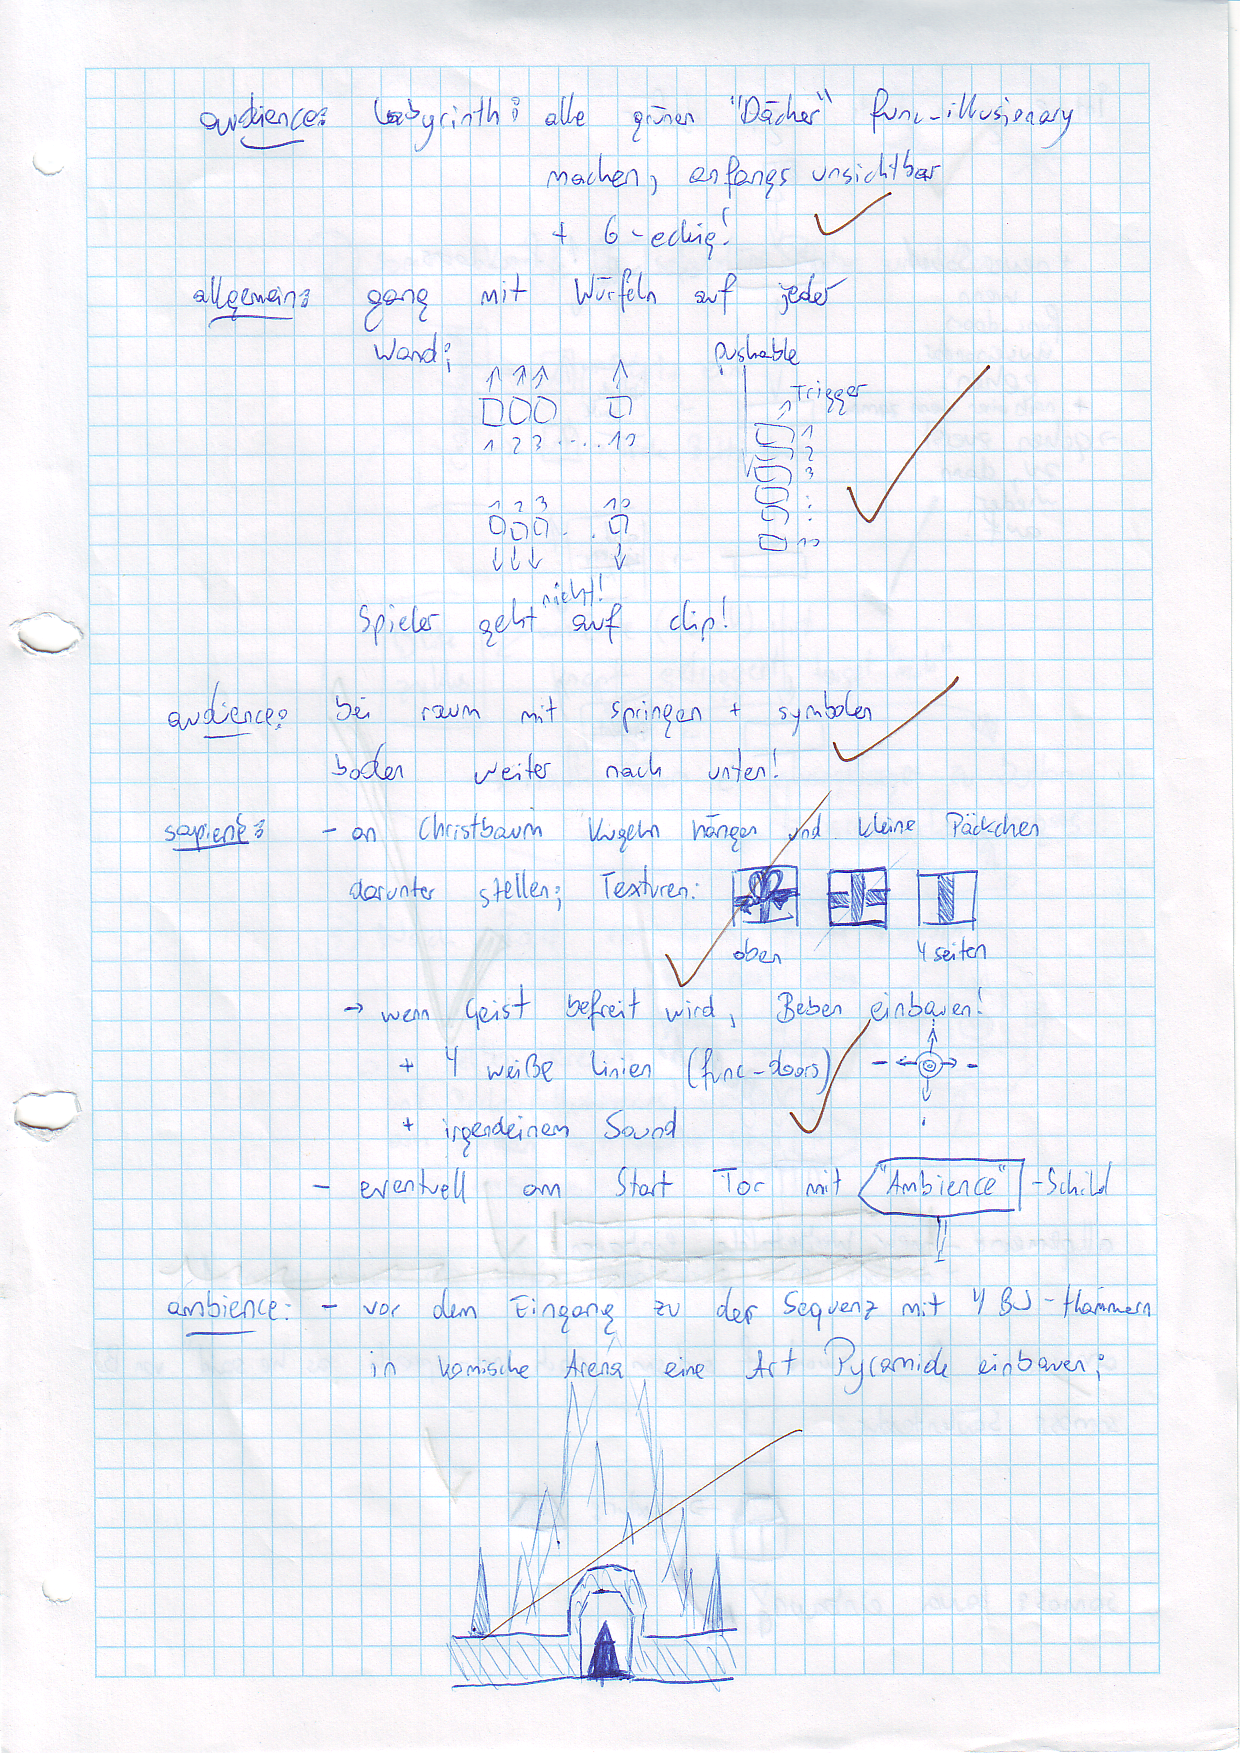 audience: labyrinth: alle grünen "Dächer" func-illusionary
machen, anfangs unsichtbar
+ 6-eckig!
allgemein: gang mit Würfeln auf jeder
Wand:
pushable
Trigger
1 2 3 ..... 10
1
2
3
:
:
10
1 2 3 10
nicht!
Spieler geht auf clip!
audience: bei raum mit springen + symbolen
boden weiter nach unten!
- an Christbaum Kugeln hängen und kleine Päckchen
darunter stellen; Texturen:
oben 4 seiten
→ wenn Geist befreit wird, Beben einbauen!
+ 4 weiße linien (func-doors)
+ irgendeinem Sound
- eventuell am Start Tor mit "Ambience"-Schild
ambience: - vor dem Eingang zu der Sequenz mit 4 BJ-thämmern
in komische Arena eine Art Pyramide einbauen;